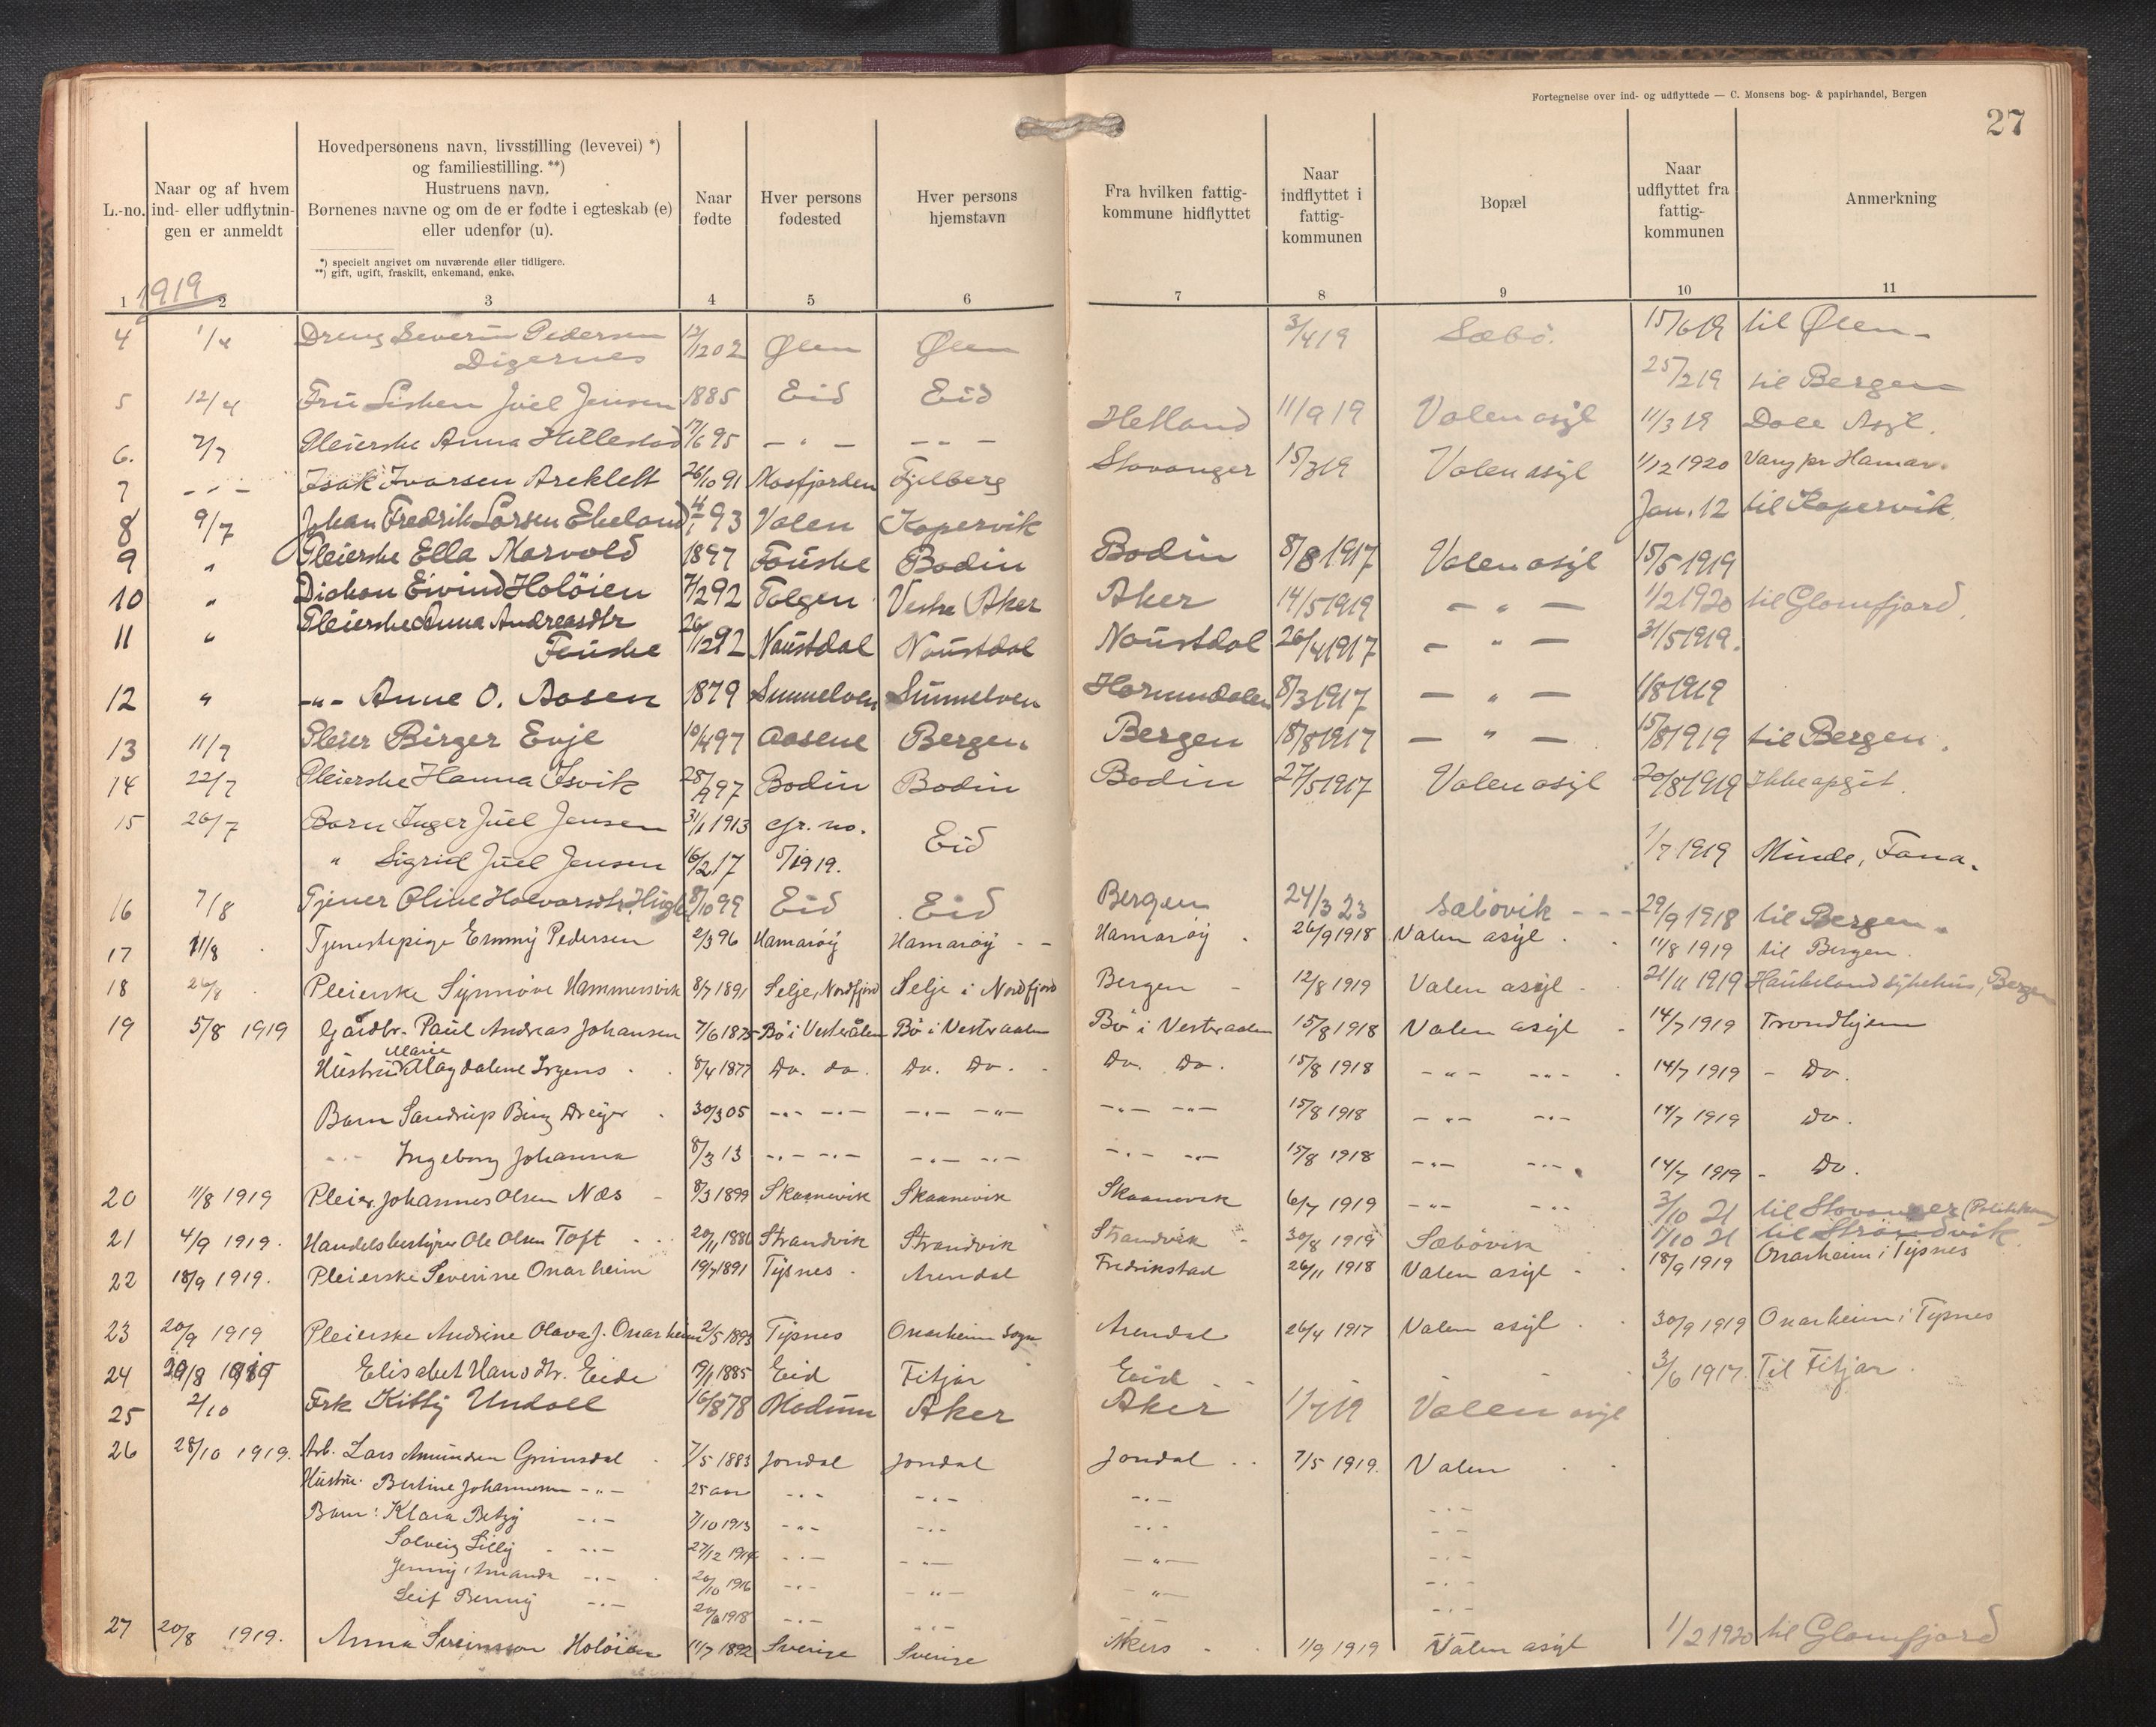 Fortegnelse over ind- og udflyttede — C. Monsens bog- & papirhandel, Bergen
27
L.-no.
Naar og af hvem ind- eller udflytningen er anmeldt
Hovedpersonens navn, livsstilling (levevei) *)
og familiestilling. **)
Hustruens navn.
Børnenes navne og om de er fødte i egteskab (e)
eller udenfor (u).
*) specielt angivet om nuværende eller tidligere.
**) gift, ugift, fraskilt, enkemand, enke.
Naar fødte
Hver persons fødested
Hver persons hjemstavn
Fra hvilken fattigkommune hidflyttet
Naar indflyttet i fattigkommunen
Bopæl
Naar udflyttet fra fattigkommunen
Anmerkning
1 2 3 4 5 6 7 8 9 10 11
1919
4 1/4 Dreng Severin Pedersen 12/12 02 Ølen Ølen 3/4 19 Sæbö. 15/6 19 til Ølen
Digernes
5 12/4 Fru Lisken Juel Jensen 1885 Eid Eid 25/2 19 til Bergen
6. 2/7 Pleierske Anna Hillestad 17/6 95 — " — — " — Hetland 11/9 19 Valen asyl 11/3 19 Dale Asyl.
7 - " - Isak Ivarsen Areklett 26/10 91 Mosfjorden Fjelberg Stavanger 15/3 19 Valen asyl 1/12 1920 Vang pr Hamar.
8 9/7 Johan Fredrik Larsen Ekeland 93 Valen Kopervik Jan. 12 til Kopervik
9 " Pleierske Ella Marvold 1897 Fauske Bodin Bodin 8/8 1917 Valen asyl 15/5 1919
10 " Diakon Eivind Holöien 7/2 92 Tolgen Vestre Aker Aker 14/5 1919 — " — 1/2 1920 til Glomfjord.
11 " Pleierske Anna Andreasdtr 26/12 92 Naustdal Naustdal Naustdal 26/4 1917 — " — 31/5 1919.
Fauske
12 " -"- Anne O. Aasen 1879 Sunnelven Sunnelven Hornindalen 8/3 1917 — " — 1/8 1919
13 11/7 Pleier Birger Evje 10/4 97 Aasene Bergen Bergen 18/8 1917 — " — 15/8 1919 til Bergen.
14 22/7 Pleierske Hanna Isvik 28/9 97 Bodin Bodin Bodin 27/5 1917 Valen asyl 20/8 1919 Ikke opgit.
15 26/7 Barn Inger Juel Jensen 31/1 1913 cfr. no. Eid
" Sigrid Juel Jensen 16/2 17 5/1919. 1/7 1919 Minde, Fana.
16 7/8 Tjener Oline Halvorsdtr. 8/10 99 Eid Eid Bergen 24/3 23 Sæbövik 29/9 1918 til Bergen.
17 11/8 Tjenestepige Emmy Pedersen 2/3 96 Hamaröy Hamaröy Hamaröy 26/9 1918 Valen asyl 11/8 1919 til Bergen.
18 26/8 Pleierske Synnöve Hammersvik 8/7 1891 Selje, Nordfjord Selje i Nordfjord Bergen 12/8 1919 Valen asyl 21/11 1919 Haukeland sykehus, Bergen
19 5/8 1919 Gårdbr. Paul Andreas Johansen 7/6 1875 Bö i Vesterålen Bö i Vesteraalen Bö i Vesteraalen 15/8 1918 Valen asyl 14/7 1919 Trondhjem
Hustru Marie Magdalene Irgens 8/4 1877 Do. do. Do. Do. Do. Do. 15/8 1918 -"- -"- 14/7 1919 - Do.
Barn Sandrup Bing Dreyer 30/3 05 -"- -"- -"- -"- -"- -"- 15/8 1918 -"- -"- 14/7 1919 Do.
-"- Ingeborg Johanna 8/3 13 -"- -"- -"- -"- -"- -"- 15/8 1918 -"- -"- 14/7 1919 - Do.
20 11/8 1919 Pleier Johannes Olsen Næs 8/3 1899 Skaanevik Skaanevik Skaanevik 6/7 1919 -"- -"- 3/10 21 til Stavanger
21 4/9 1919. Handelsbestyrer Ole Olsen Toft 20/11 1886 Strandvik Strandvik Strandvik 30/8 1919 Sæbövik 1/10 21 til Strandvik
22 18/9 1919. Pleierske Severine Onarheim 19/7 1891 Tysnes Arendal Fredrikstad 26/11 1918 Valen asyl 18/9 1919 Onarheim i Tysnes
23 20/9 1919 Pleierske Andrine Olava J. Onarheim 2/5 1893 Tysnes Onarheim Sogn Arendal 26/4 1917 Valen asyl 30/9 1919 Onarheim i Tysnes
24 Elisabet Hansdtr. Eide 19/1 1885 Eid Fitjar Eid 3/6 1917 Til Fitjar.
25 2/10 Frk Kitty Undall 16/8 78 Modum Aker Aker 1/7 19 Valen asyl
26 28/10 1919. Arb. Lars Amunden Grimsdal 7/5 1883 Jondal Jondal Jondal 7/5 1919. Valen
Hustru. Bertine Johannesen -"- 25 aar -"- -"- -"- -"-
Barn: Klara Betzy -"- 7/10 1913 -"- -"- -"- -"-
Solveig Lilly -"- 27/12 1914 -"- -"- -"- -"-
Jenny Amanda -"- 20/10 1916 -"- -"- -"- -"-
Leif Benny -"- 1918 -"- -"- -"-
27 20/8 1919. Anna Sveinsson Holöien 11/7 1892 Sverige Sverige Akers 1/9 1919 Valen asyl 1/2 1920 til Glomfjord